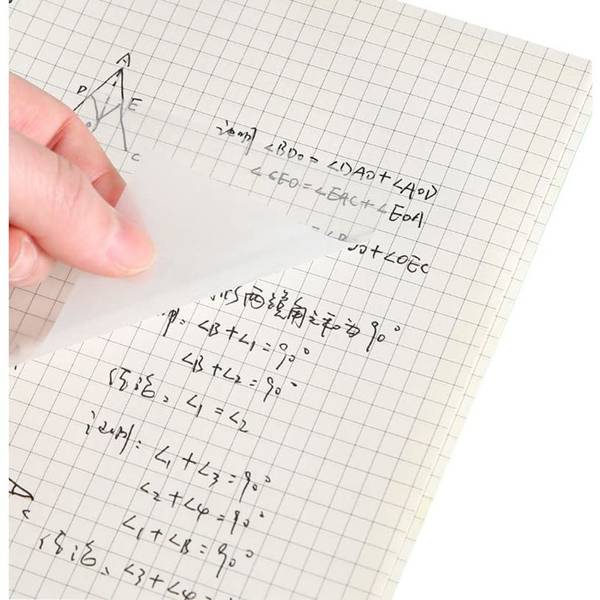 A
D E
C
证明 ∠BDO=∠DAO+∠AOD
∠CEO=∠EAC+∠EOA
+∠OEC
两锐角之和为90°
∠B+∠1=90°
∠B+∠2=90°
结论:∠1=∠2
证明:∠1+∠3=90°
∠2+∠4=90°
∠1+∠B=90°
C
结论:∠3+∠4=